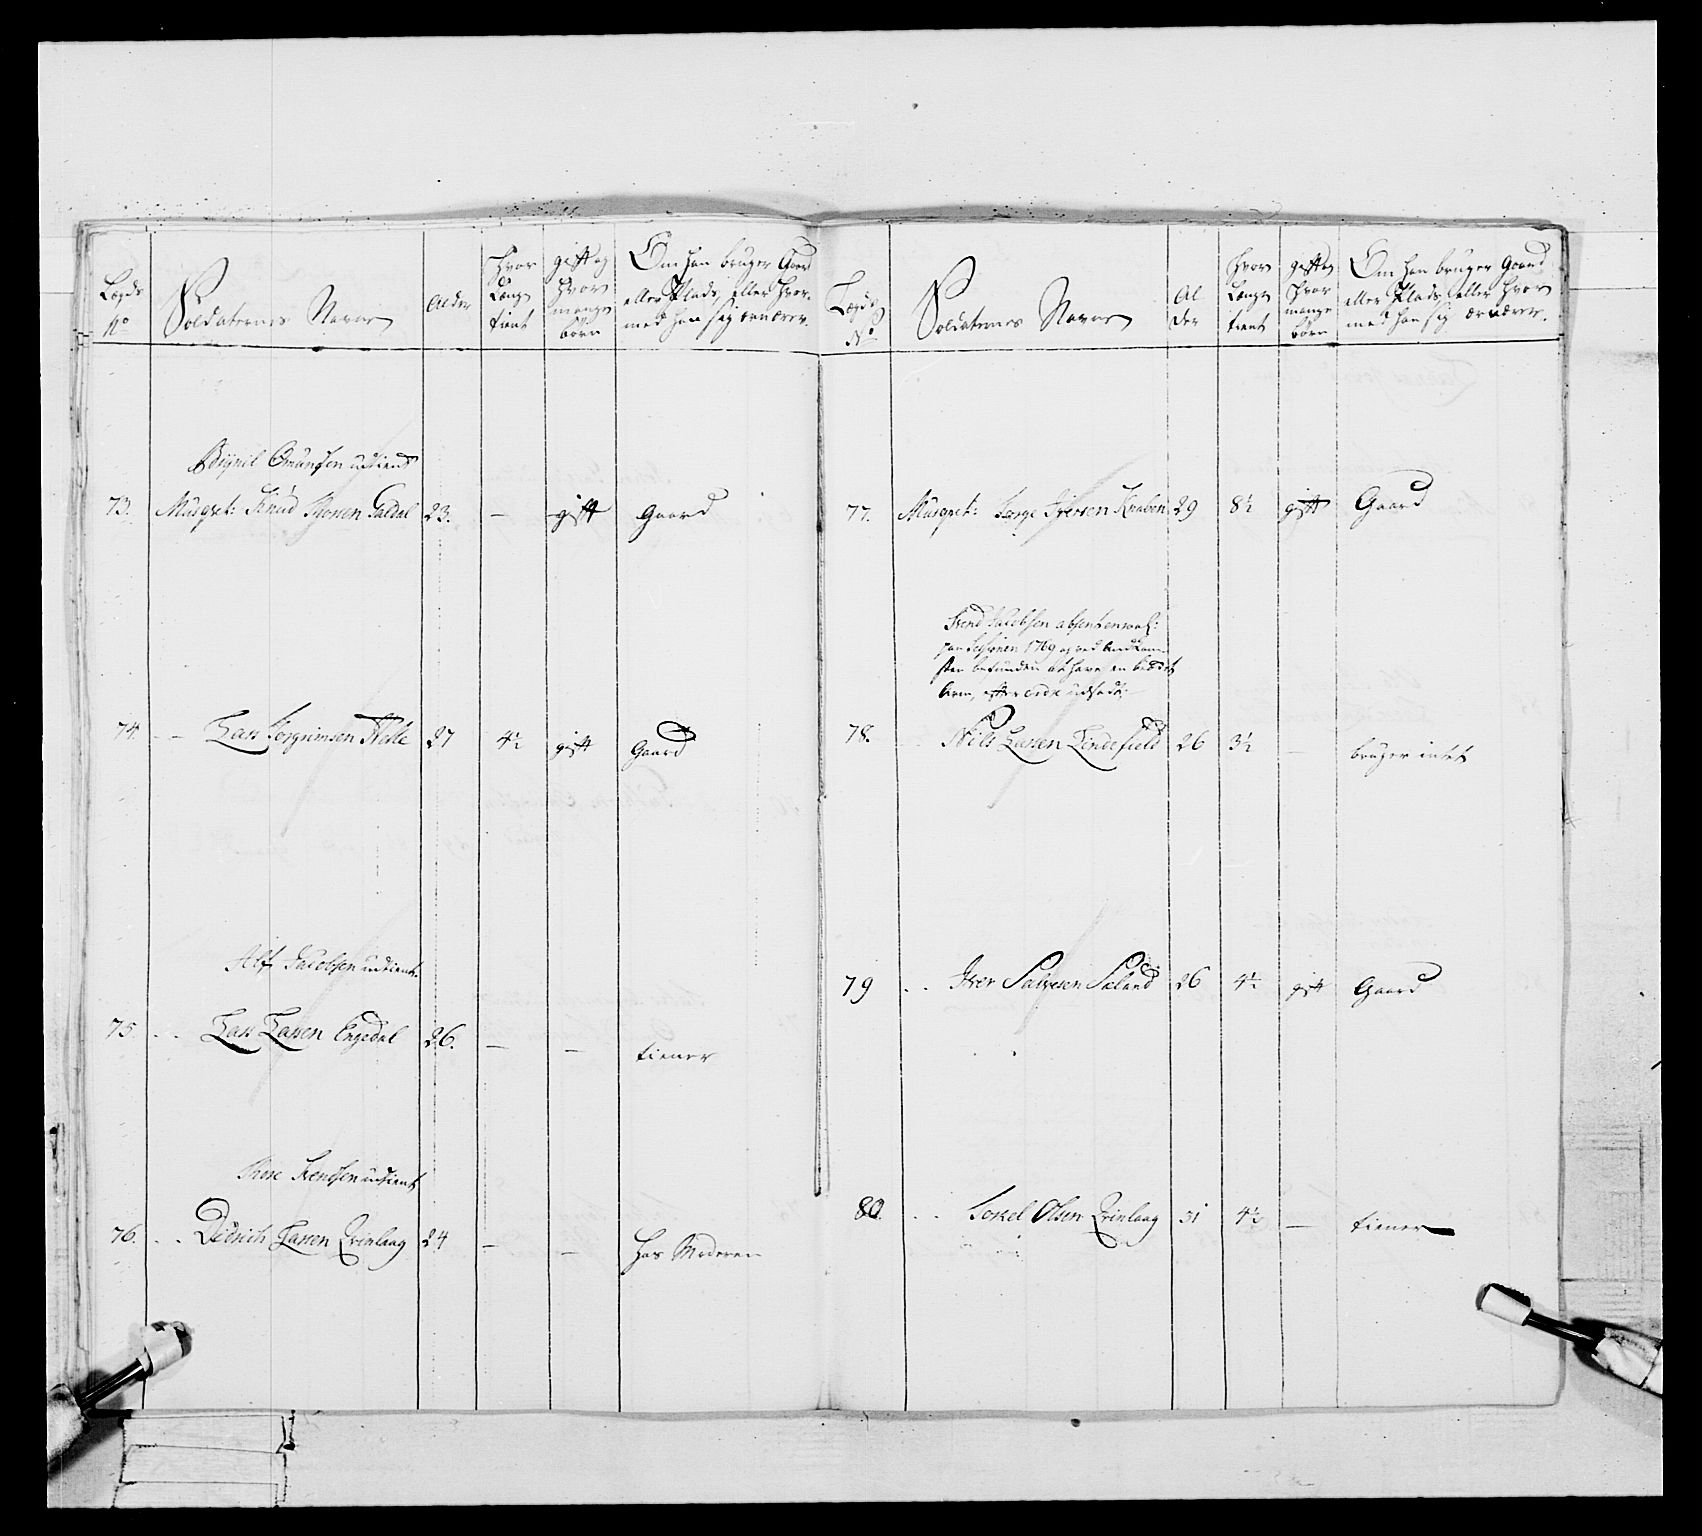 Lægds No
Soldaternes Navne
Alder
hvor Længe tient
gift og hvor mange børn
Om han bruger Gaard eller Plads, eller hvormed han sig ernærer.
Omundsen udtient
73. Musqet: Knud Thorsen Galdal 23. — gift Gaard
74. — — Lars Torgrimsen Helle 27 4½ gift Gaard
Alf Jacobsen udtient
75. . . Lars Larsen Engedal 26. — — tiener
Thore Svendsen udtient
76. . . Didrich Larsen Qvinlaag 24 — — hos Moderen
Lægds No
Soldaternes Navne
Alder
hvor Længe tient
gift og hvor mange børn
Om han bruger Gaard eller Plads, eller hvormed han sig ernærer.
77. Musqet: Iversen Knaben 29 8½ gift Gaard
Svend Jacobsen absenteret
paa Sessionen 1769 og ved
befunden at have en
Arm, efter Ordre udsadt.
78. . . Nils Larsen Lindefield 26 3½ — bruger intet
79 . . Iver Salvesen Sæland 26 4½ gift Gaard
80. . . Torkel Olsen Qvinlaag 31 4½ — tiener